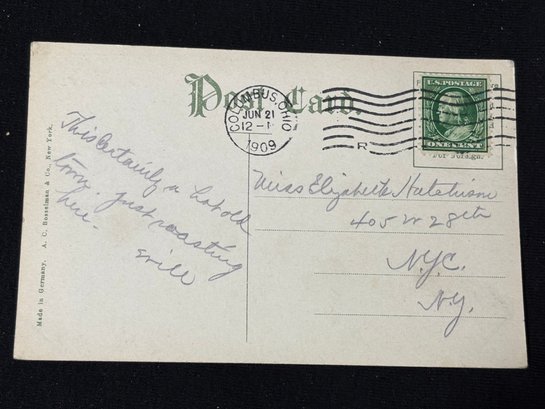 Post Card.
COLUMBUS, OHIO
JUN 21
12-1
1909
R
U.S. POSTAGE
ONE CENT
For Foreign.
This certainly a hot old
town. Just roasting
here.
Will
Miss Elizabeth Hutchison
405 W 28th
N.Y.C.
N.Y.
Made in Germany. A. C. Bosselman & Co., New York.